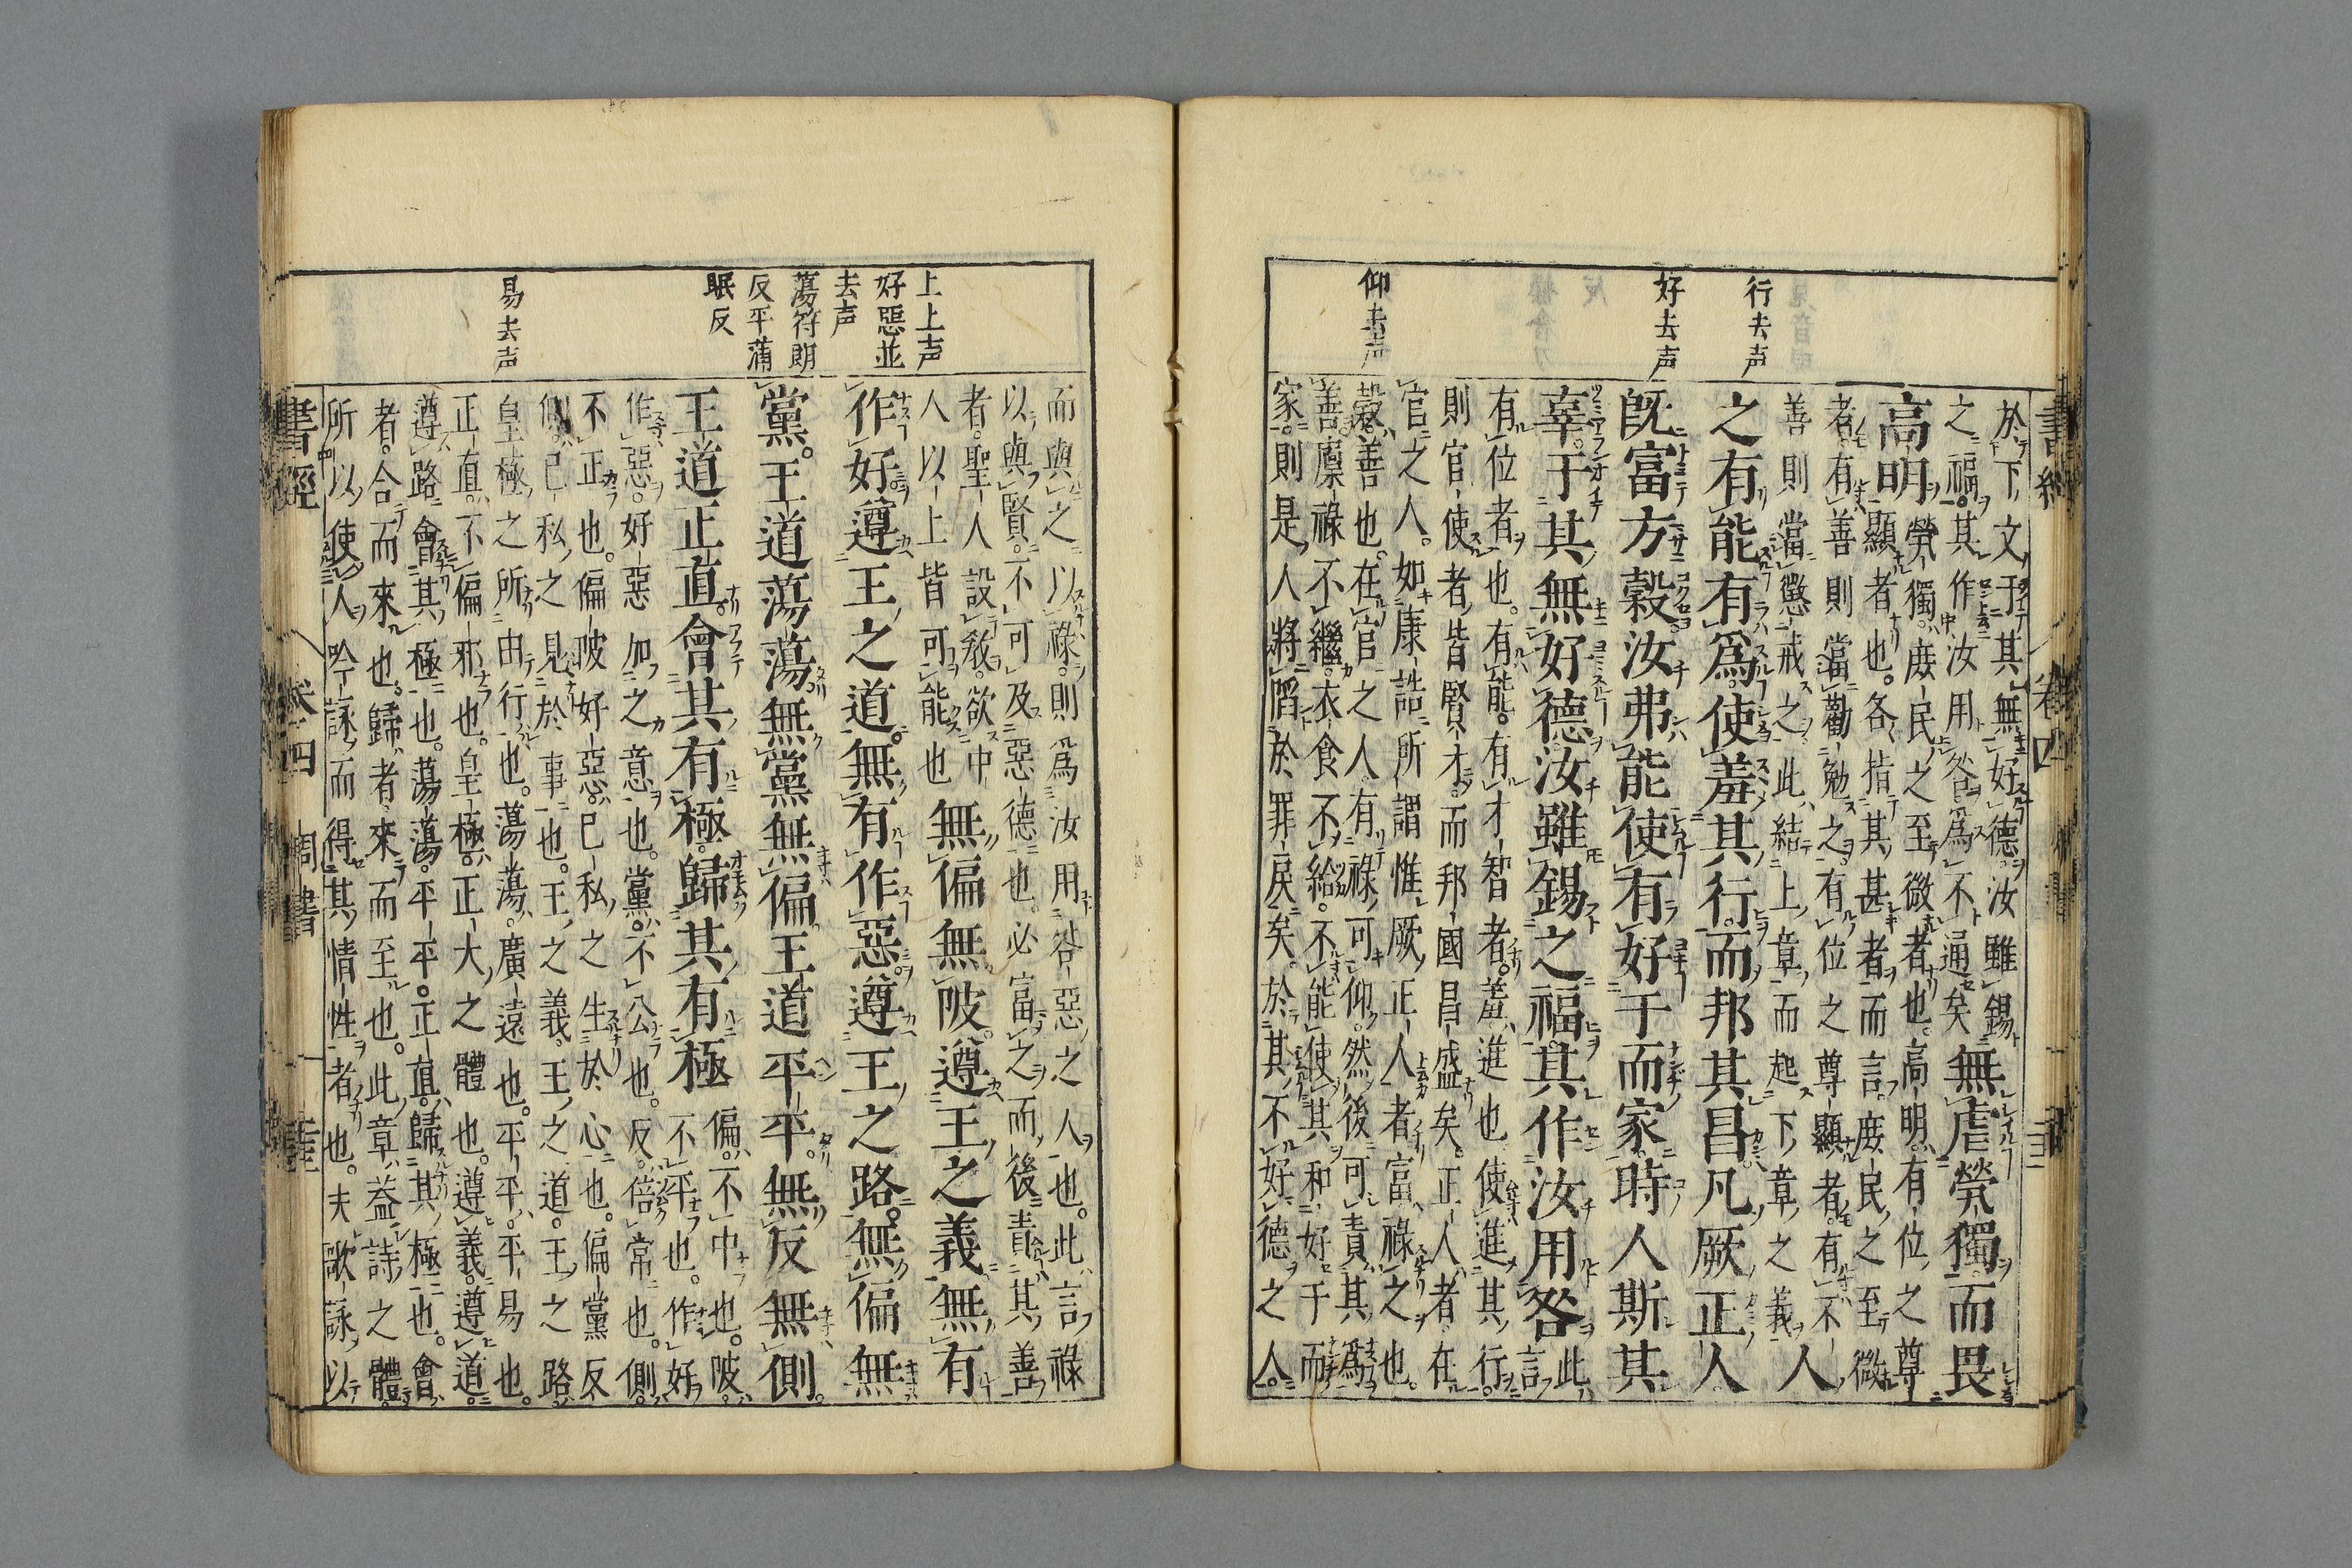 行去声
好去声
仰去声
書經 卷四
於下文于其無好德汝雖錫
之福。其作汝用咎爲不通矣
無虐煢獨而畏
高明
煢獨庶民之至微者也。高明有位之尊
顯者也。各指其甚者而言。庶民之至微
者。有善則當勸勉之。有位之尊顯者。有不
善則當懲戒之。此結上章而起下章之義
人
之有能有爲使羞其行而邦其昌凡厥正人
既富方穀汝弗能使有好于而家時人斯其
辜于其無好德汝雖錫之福其作汝用咎
此
言
有位者也。有能。有才智者。羞進也使進其行。
則官使者皆賢才。而邦國昌盛矣。正人者在
官之人。如康誥所謂惟厥正人者富祿之也。
穀善也。在官之人有祿可仰。然後可責其爲
善。廩祿不繼。衣食不給。不能使其和好于而
家。則是人將陷於罪戾矣。於其不好德之人。
上上声
好惡並
去声
蕩符朗
反平蒲
眠反
易去声
而與之以祿。則爲汝用咎惡之人也。此言祿
以與賢。不可及惡德也。必富之而後責其善
者。聖人設敎。欲中
人以上皆可能也
無偏無陂。遵王之義。無有
作好。遵王之道。無有作惡。遵王之路。無偏無
黨。王道蕩蕩。無黨無偏。王道平平。無反無側。
王道正直。會其有極。歸其有極
偏。不中也。陂。
不平也。作好
作惡。好惡加之意也。黨。不公也。反。倍常也。側。
不正也。偏陂好惡。己私之生於心也。偏黨反
側。己私之見於事也。王之義。王之道。王之路。
皇極之所由行也。蕩蕩。廣遠也。平平。平易也。
正直。不偏邪也。皇極正大之體也。遵義。遵道。
遵路。會其極也。蕩蕩。平平。正直。歸其極也。會
者。合而來也。歸者。來而至也。此章。蓋詩之體。
所以使人吟詠而得其情性者也。夫歌詠以
書經 卷四 周書